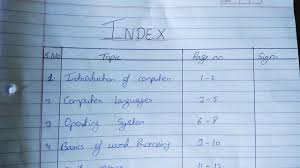 INDEX
S.No Topic Page no Sign
1. Introduction of computer 1-2
2. Computer languages 3-5
3. Operating System 6-8
4. Basics of word Processing 9-10